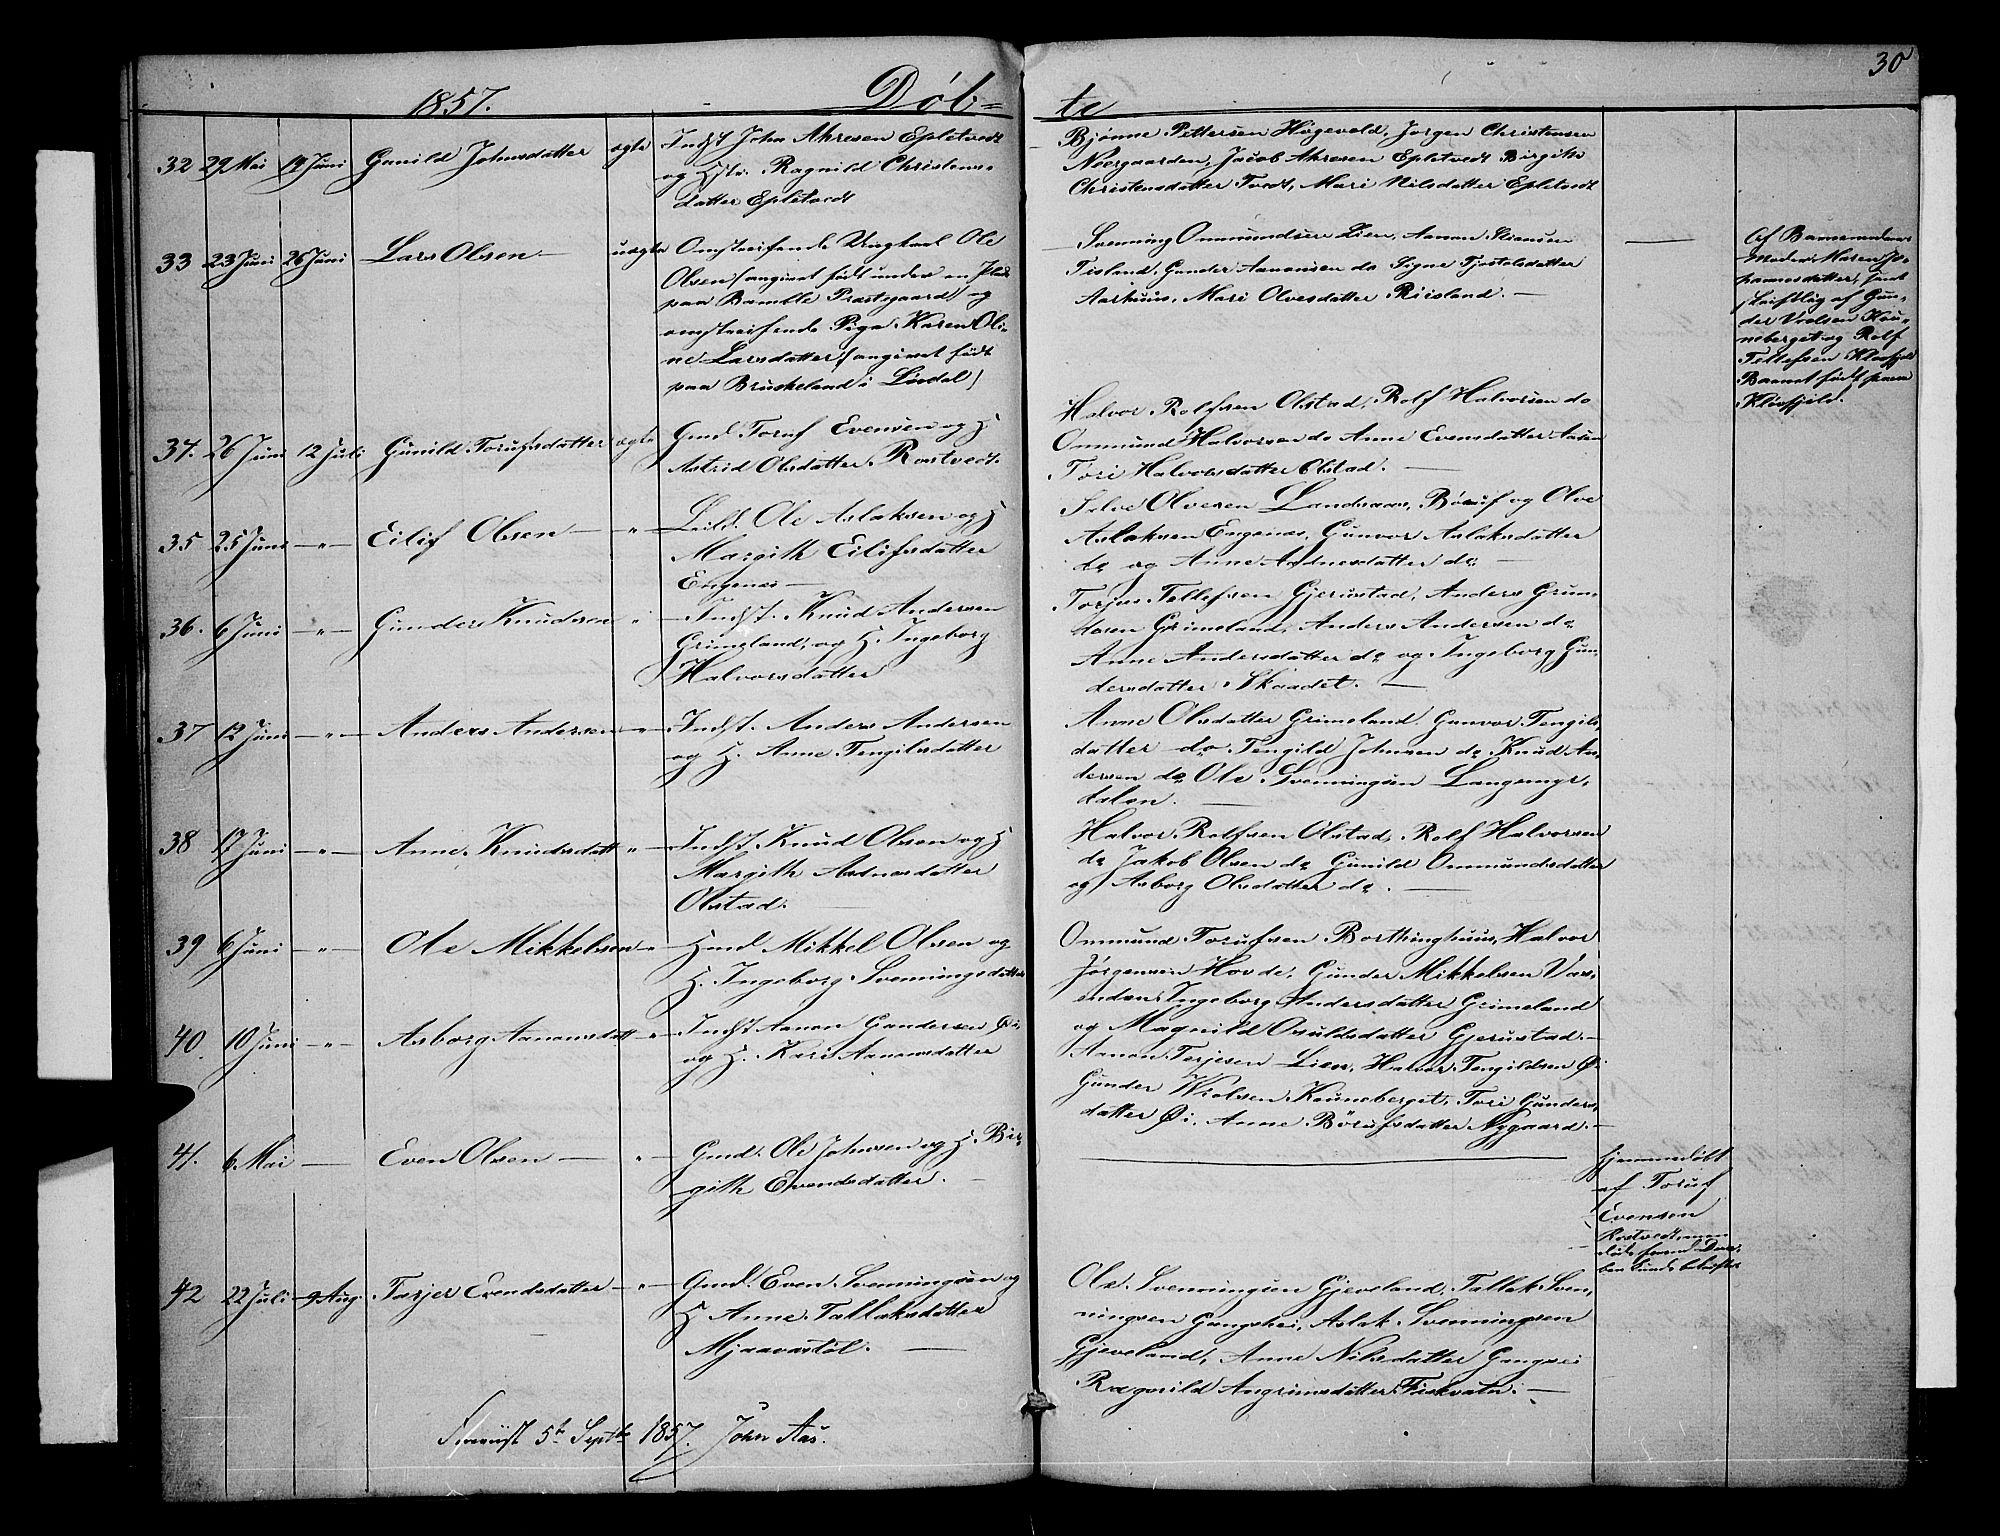 30
1857. Döb= te
32 29 Mai 14 Juni Gunild Johnsdatter ægte Indst John Ahresen Epletvedt
og Hstr. Ragnild Christens-
datter Epletvedt
Bjønne Pettersen Högevold, Jørgen Christensen
Noergaarden, Jacob Ahresen Epletvedt Birgitte
Christensdatter Tvedt, Mari Nilsdatter Epletvedt
33 23 Juni 26 Juni Lars Olsen — uægte Omstreifende Ungkarl Ole
Olsen (angivet født under en Plads
paa Bamble Præstegaard) og
omstreifende Pige Karen Oli-
ne Larsdatter (angivet født
paa Bruskeland i Lindal)
Svenning Ommundsen Lien, Aanon
Tisland, Gunder Aanonsen do Signe Tjostolsdatter
Aarhuus, Mari Olvesdatter Riisland. —
Af Barnemoderens
Moder Maren Jo-
hannesdatter, samt
skriftlig af Gun-
der Vrolsen Kou-
neberget og Rolf
Tellefsen Klovfjeld
Barnet født paa
Klovfjeld.
34. 26 Juni 12 Juli Gunild Torufsdatter ægte Gmd Toruf Evensen og H
Astrid Olsdatter Rostvedt.
Halvor Rolfsen Olstad, Rolf Halvorsen do
Ommund Halvorsen do Anne Evensdatter Aasen
Tori Halvorsdatter Olstad. —
35 25 Juni —"— Eilif Olsen — " — Leild. Ole Aslaksen og H
Margith Eilifsdatter
Engenes —
Selve Olvesen Landsaas, Böruf og Olve
Aslaksen Engenæs, Gunvor Aslaksdatter
do og Anne Adnesdatter do. —
36. 6 Juni —"— Gunder Knudsen " — Indst. Knud Andersen
Grimeland, og H. Ingeborg
Halvorsdatter
Torjus Tellefsen Gjerustad, Anders Gun-
dersen Grimeland, Anders Andersen do
Anne Andersdatter do og Ingeborg Gun-
dersdatter Skaadet. —
37 12 Juni —"— Anders Andersen —"— Indst. Anders Andersen
og H. Anne Tengilsdatter
Anne Olsdatter Grimeland. Gunvor Tengils-
datter do Tengild Johnsen do Knud An-
dersen do Ole Svenningsen Langemyr-
dalen. —
38 17 Juni —"— Anne Knudsdatt " — Indst. Knud Olsen og H
Margith Adnesdatter
Olstad. —
Halvor Rolfsen Olstad, Rolf Halvorsen
do Jakob Olsen do Gunild Ommundsdatter
og Asborg Olsdatter do. —
39 6 Juni —"— Ole Mikkelsen —"— Gmd Mikkel Olsen og
H. Ingeborg Svenningsdatter
Ommund Torufsen Borthinghuus, Halvor
Jørgensen Hovde, Gunder Mikkelsen Vas-
enden Ingeborg Andersdatter Grimeland
og Magnild Osuldsdatter Gjerustad. —
40 10 Juni —"— Asborg Aanonsdatt —"— Indst Aanon Gundersen Øi
og H. Kari Aanonsdatter
Aanon Terjesen Lien, Halvor Tengildsen Øi
Gunder Wrolsen Kouneberget, Tori Gunders-
datter Øi, Anne Börufsdatter Nygaard. —
41. 6 Mai — Even Olsen — " — Gmd. Ole Johnsen og H. Bir-
gith Evendsdatter. —
hjemmedøbt
af Toruf
Evensen
Rostvedt, men
døde
42 22 Juli 9 Aug. Tarjer Evendsdatter —"— Gmd. Even Svenningsen og
H Anne Tallaksdatter
Mjaavastöl. —
Ole Svenningsen Gjeveland, Tallak Sven-
ningsen Gangshei, Aslak Svenningsen
Gjeveland, Anne Nilsdatter Gangshei
Ragnild Angrimsdatter Fiskvatn. —
5te Septbr 1857. John Aas.